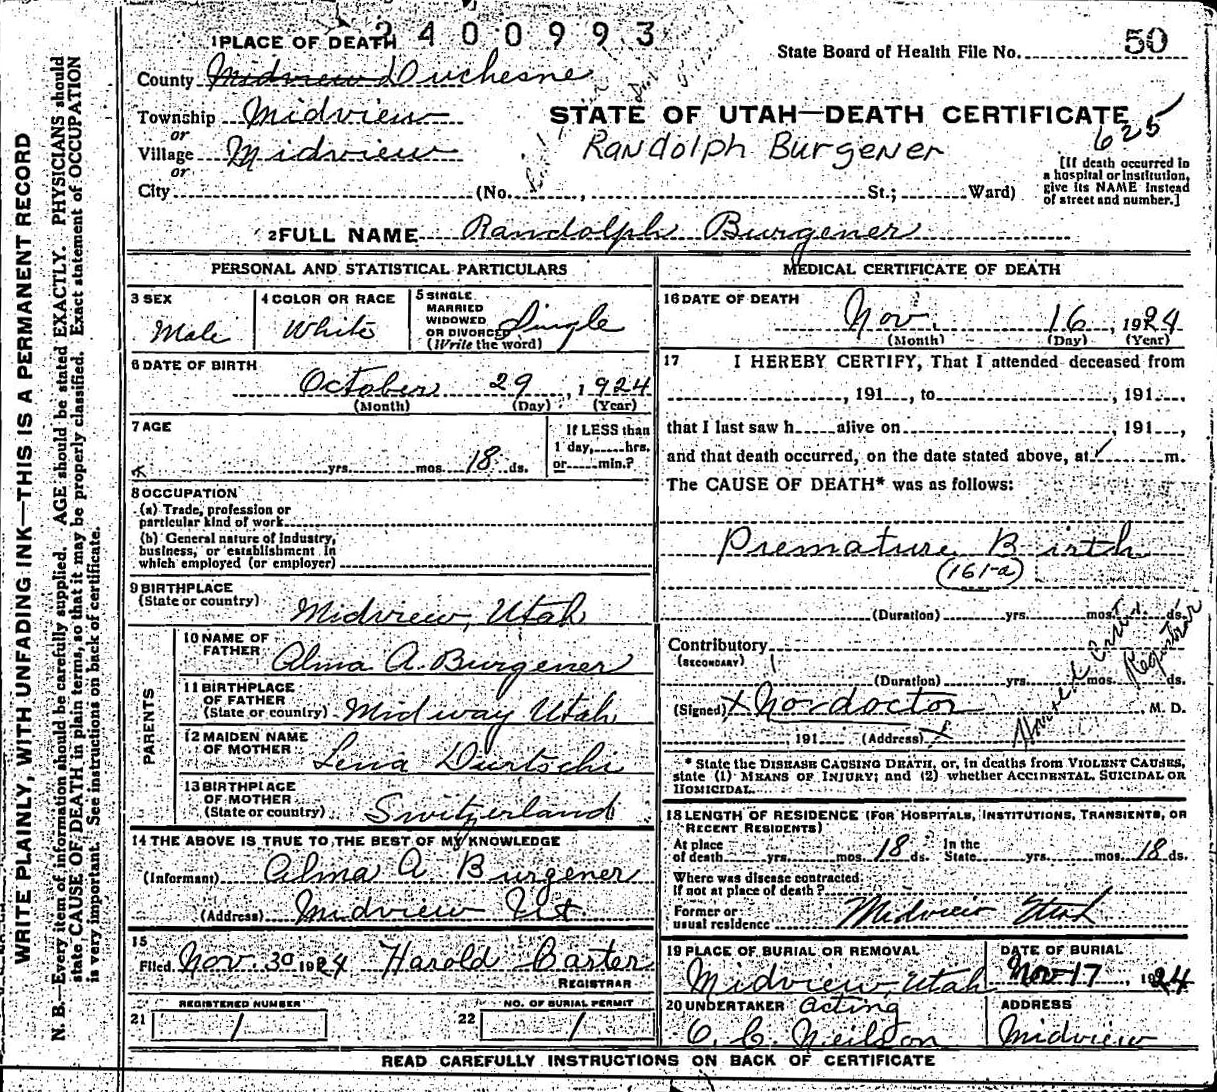 2400993
1 PLACE OF DEATH
State Board of Health File No. 50
County Midview Duchesne
Township Midview
or
STATE OF UTAH—DEATH CERTIFICATE
625
Village Midview
or
Randolph Burgener
[If death occurred in a hospital or institution, give its NAME instead of street and number.]
City (No. , St.; Ward)
2 FULL NAME Randolph Burgener
PERSONAL AND STATISTICAL PARTICULARS
3 SEX
Male
4 COLOR OR RACE
White
5 SINGLE
MARRIED
WIDOWED
OR DIVORCED
(Write the word)
Single
6 DATE OF BIRTH
October 29, 1924
(Month) (Day) (Year)
7 AGE
yrs. mos. 18 ds.
If LESS than
1 day, hrs.
or min.?
8 OCCUPATION
(a) Trade, profession or
particular kind of work
(b) General nature of industry,
business, or establishment in
which employed (or employer)
9 BIRTHPLACE
(State or country) Midview, Utah
PARENTS
10 NAME OF
FATHER Alma A. Burgener
11 BIRTHPLACE
OF FATHER
(State or country) Midway Utah
12 MAIDEN NAME
OF MOTHER Lena Durtschi
13 BIRTHPLACE
OF MOTHER
(State or country) Switzerland
14 THE ABOVE IS TRUE TO THE BEST OF MY KNOWLEDGE
(Informant) Alma A. Burgener
(Address) Midview Ut
15
Filed Nov. 30 1924 Harold Carter
REGISTRAR
REGISTERED NUMBER
21 1
NO. OF BURIAL PERMIT
22 1
MEDICAL CERTIFICATE OF DEATH
16 DATE OF DEATH
Nov. 16, 1924
(Month) (Day) (Year)
17 I HEREBY CERTIFY, That I attended deceased from
, 191 , to , 191 ,
that I last saw h alive on , 191 ,
and that death occurred, on the date stated above, at m.
The CAUSE OF DEATH* was as follows:
Premature Birth
(161-a)
(Duration) yrs. mos. ds.
Contributory
(SECONDARY)
(Duration) yrs. mos. ds.
(Signed) X No doctor M. D.
191 (Address) X
Registrar
* State the DISEASE CAUSING DEATH, or, in deaths from VIOLENT CAUSES,
state (1) MEANS OF INJURY; and (2) whether ACCIDENTAL, SUICIDAL OR
HOMICIDAL.
18 LENGTH OF RESIDENCE (FOR HOSPITALS, INSTITUTIONS, TRANSIENTS, OR
RECENT RESIDENTS)
At place
of death yrs. mos. 18 ds.
In the
State yrs. mos. 18 ds.
Where was disease contracted
If not at place of death?
Former or
usual residence Midview Utah
19 PLACE OF BURIAL OR REMOVAL
Midview Utah
DATE OF BURIAL
Nov 17, 1924
20 UNDERTAKER acting
O. C. Neilson
ADDRESS
Midview
READ CAREFULLY INSTRUCTIONS ON BACK OF CERTIFICATE
WRITE PLAINLY, WITH UNFADING INK—THIS IS A PERMANENT RECORD
N. B.—Every item of information should be carefully supplied. AGE should be stated EXACTLY. PHYSICIANS should
state CAUSE OF DEATH in plain terms, so that it may be properly classified. Exact statement of OCCUPATION
is very important. See instructions on back of certificate.